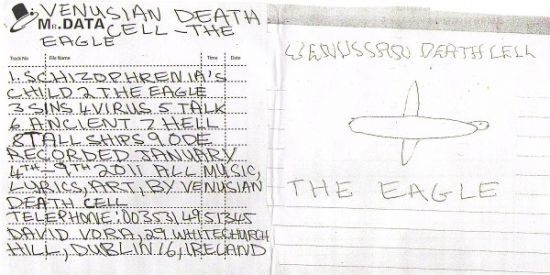 VENUSIAN DEATH
CELL - THE
EAGLE
Mr. DATA
Track No File Name Time Date
1. SCHIZOPHRENIA'S
CHILD 2 THE EAGLE
3 SINS 4 VIRUS 5 TALK
6 ANCIENT 7 HELL
8 TALL SHIPS 9 ODE
RECORDED JANUARY
4TH-9TH 2011 ALL MUSIC,
LYRICS, ART, BY VENUSIAN
DEATH CELL
TELEPHONE: 0035314951345
DAVID VORA, 29 WHITECHURCH
HILL, DUBLIN 16, IRELAND
VENUSSAN DEATH CELL
THE EAGLE